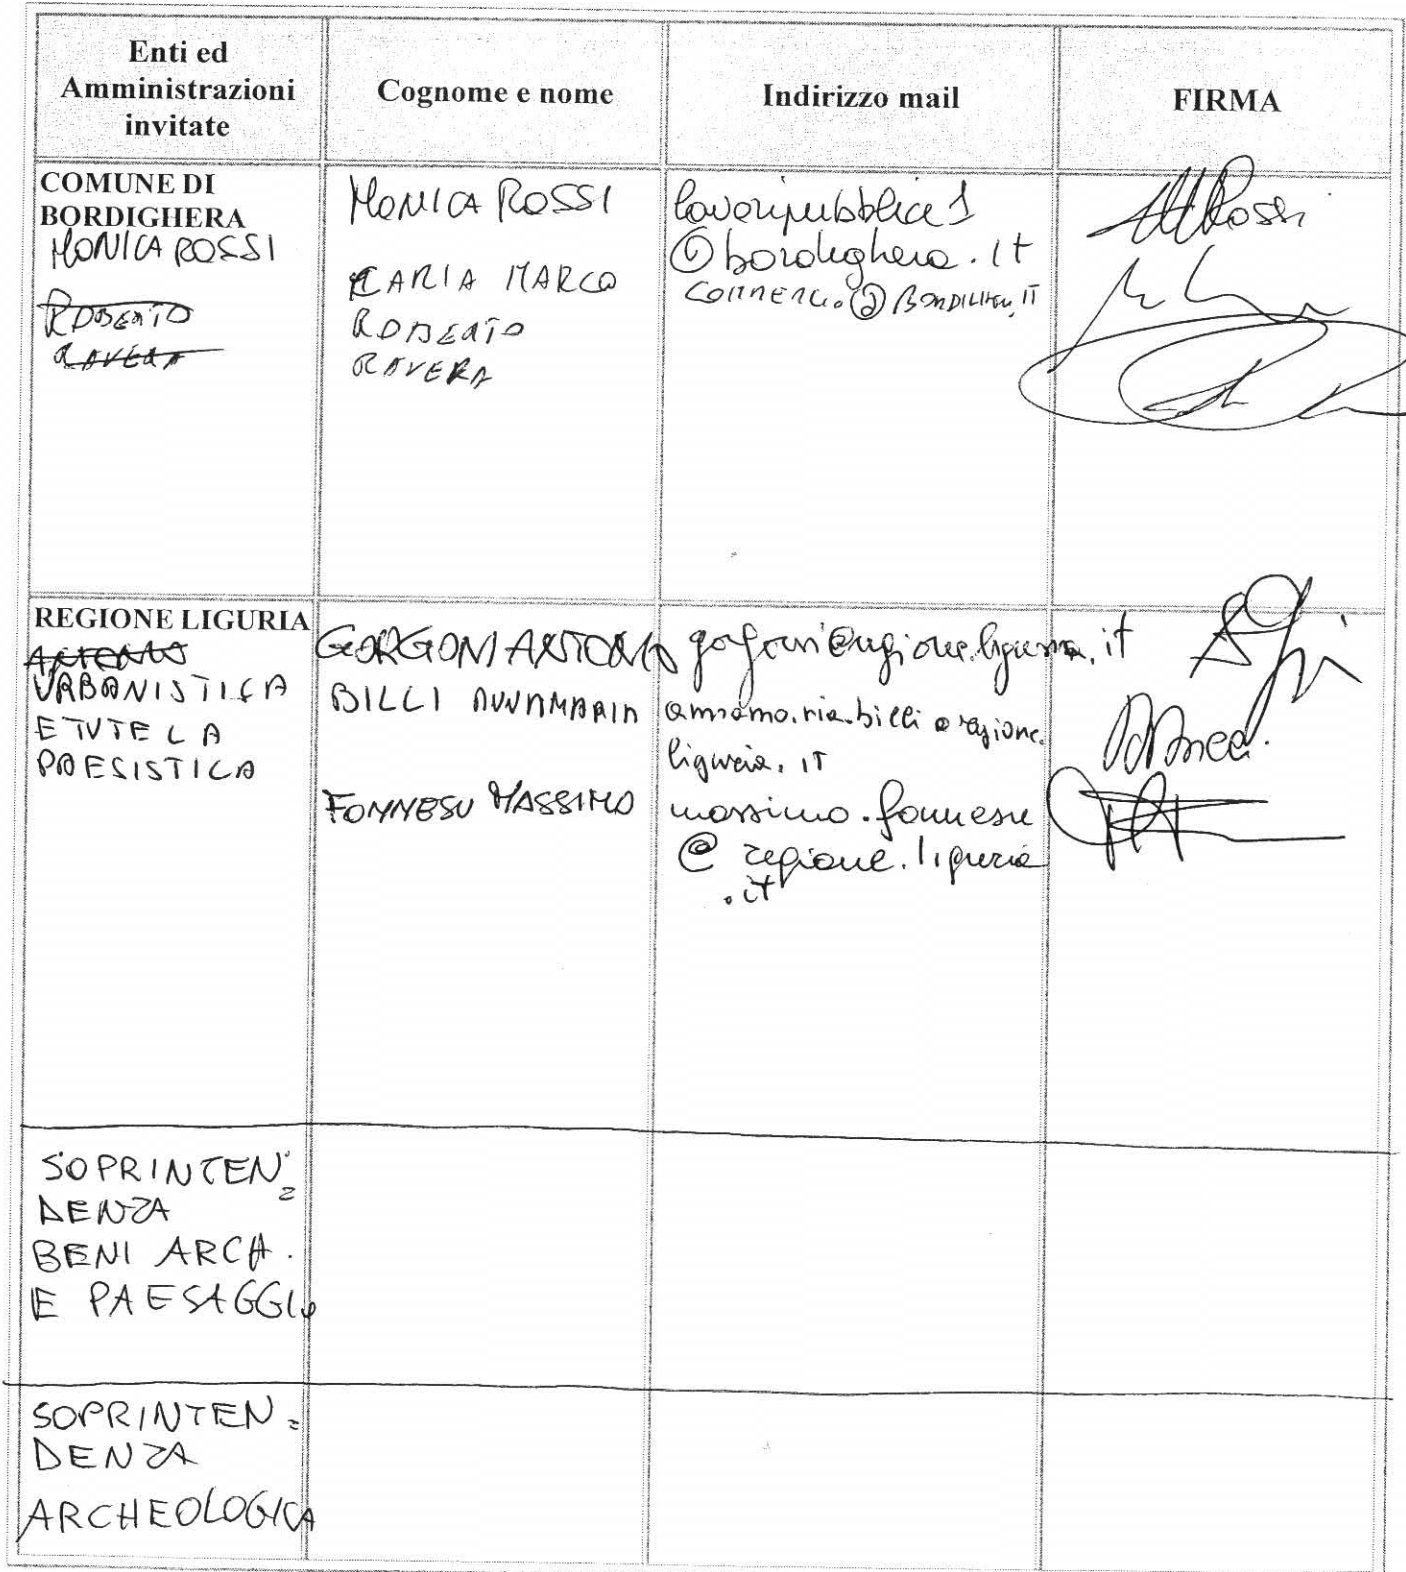 Enti ed
Amministrazioni
invitate
Cognome e nome
Indirizzo mail
FIRMA
COMUNE DI
BORDIGHERA
MONICA ROSSI
ROBERTO
RAVERA
MONICA ROSSI
CARIA MARCO
ROBERTO
RAVERA
@bordighera.it
REGIONE LIGURIA
ANTONIO
URBANISTICA
E TUTELA
PAESISTICA
GORGONI ANTONIO
BILLI ANNAMARIA
FONNESU MASSIMO
annamaria.billi@regione.
liguria.it
massimo.fonnesu
@regione.liguria
.it
SOPRINTEN=
DENZA
BENI ARCH.
E PAESAGGIO
SOPRINTEN=
DENZA
ARCHEOLOGICA